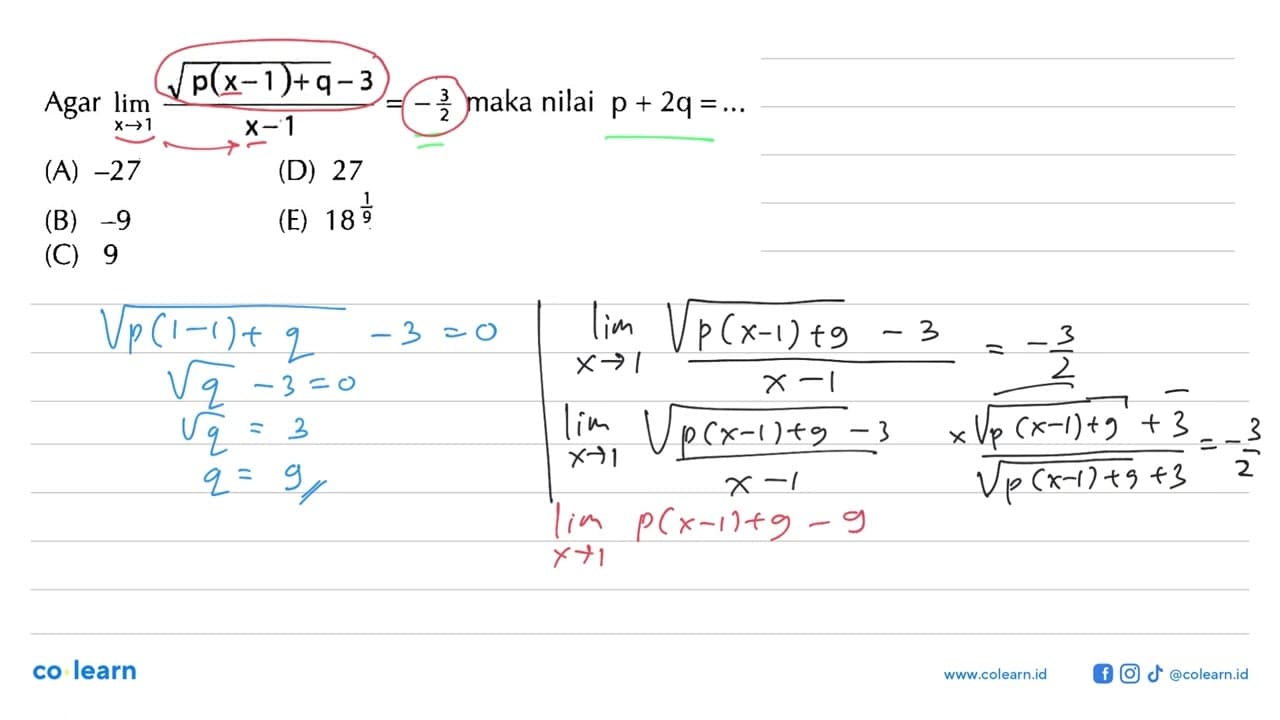 Agar lim x→1 (√(p(x−1)+q) − 3)/(x−1) = −3/2 maka nilai p + 2q = ...
(A) −27 (D) 27
(B) −9 (E) 18^(1/9)
(C) 9
√(p(1−1)+q) − 3 = 0
√q − 3 = 0
√q = 3
q = 9
lim x→1 (√(p(x−1)+9) − 3)/(x−1) = −3/2
lim x→1 (√(p(x−1)+9) − 3)/(x−1) × (√(p(x−1)+9) + 3)/(√(p(x−1)+9) + 3) = −3/2
lim x→1 p(x−1)+9 − 9
co learn
www.colearn.id @colearn.id